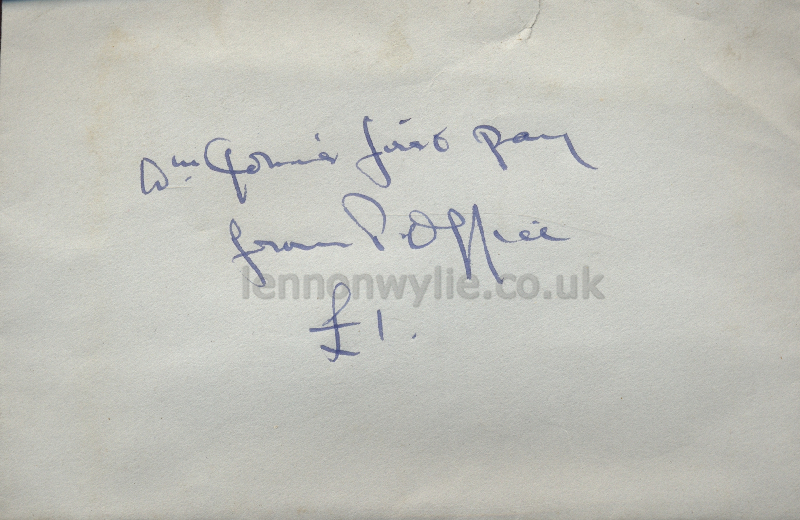 Wm Gormie's first pay
from P. Office
lennonwylie.co.uk
£1.